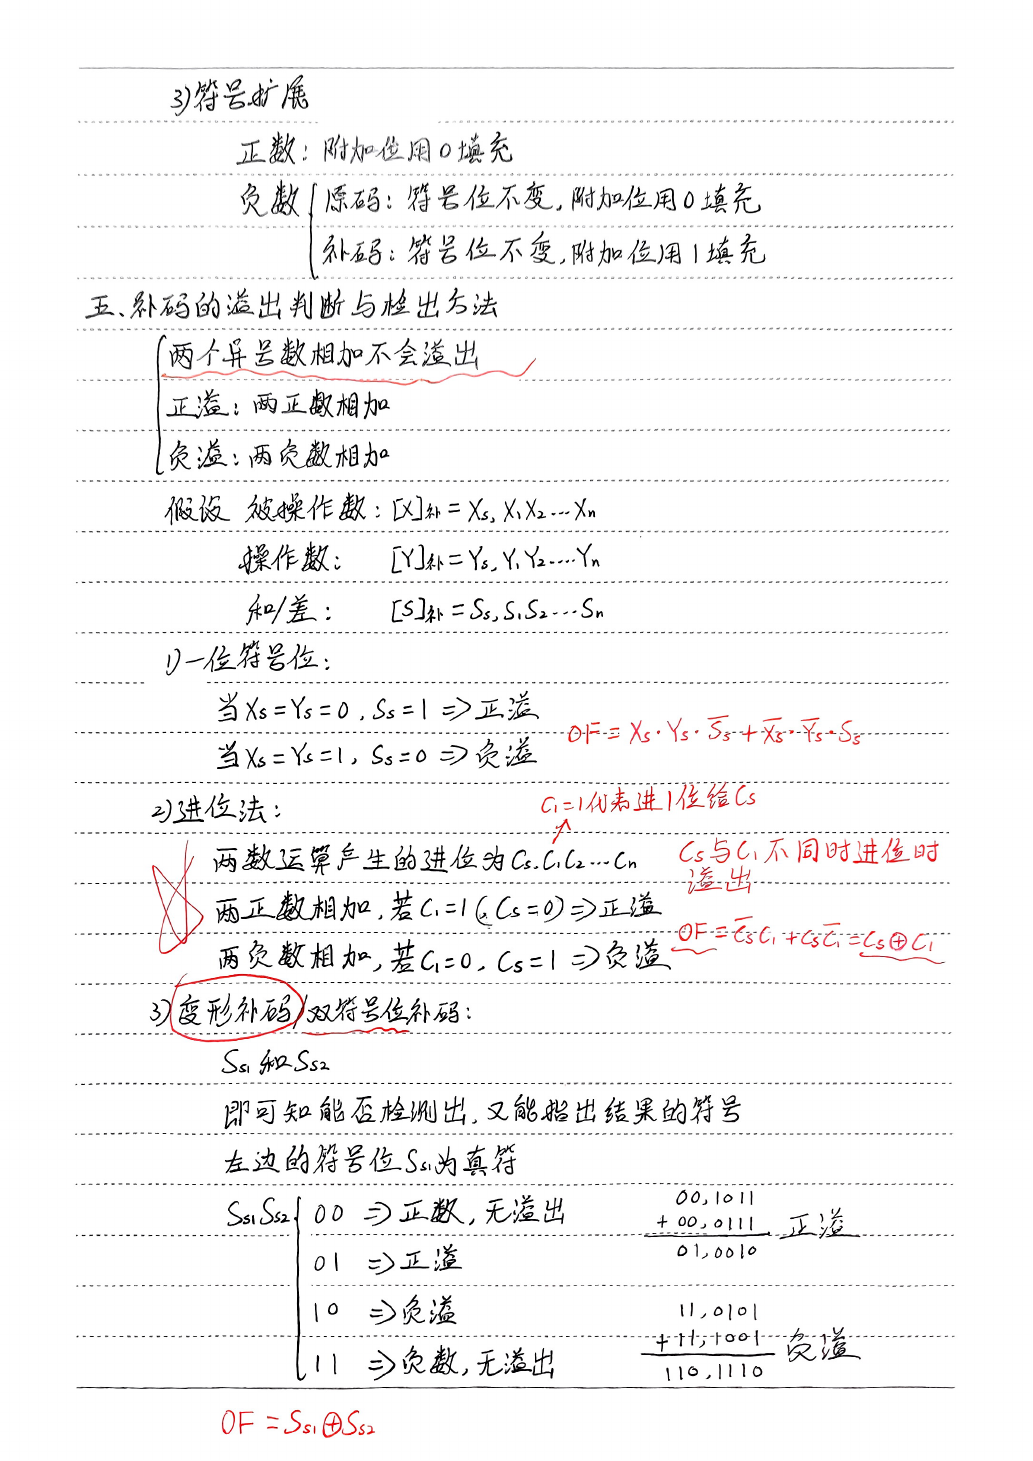 3)符号扩展
正数：附加位用0填充
负数{原码：符号位不变,附加位用0填充
补码：符号位不变,附加位用1填充
五、补码的溢出判断与检出方法
{两个异号数相加不会溢出
正溢：两正数相加
负溢：两负数相加
假设 被操作数：[X]补=Xs,X1X2…Xn
操作数： [Y]补=Ys,Y1Y2…·Yn
和/差： [S]补=Ss,S1S2…·Sn
1)一位符号位：
当Xs=Ys=0,Ss=1⇒正溢
当Xs=Ys=1,Ss=0⇒负溢
OF=Xs·Ys·S̅s+X̅s·Y̅s·Ss
2)进位法：
C1=1代表进1位给Cs
两数运算产生的进位为Cs.C1C2…Cn
Cs与C1不同时进位时
溢出
两正数相加,若C1=1(,Cs=0)⇒正溢
OF=C̅sC1+CsC̅1=Cs⊕C1
两负数相加,若C1=0,Cs=1⇒负溢
3)变形补码/双符号位补码：
Ss1和Ss2
即可知能否检测出,又能指出结果的符号
左边的符号位Ss1为真符
Ss1Ss2{00⇒正数,无溢出
01⇒正溢
10⇒负溢
11⇒负数,无溢出
00,1011
+00,0111 正溢
01,0010
11,0101
+11,1001 负溢
110,1110
OF=Ss1⊕Ss2